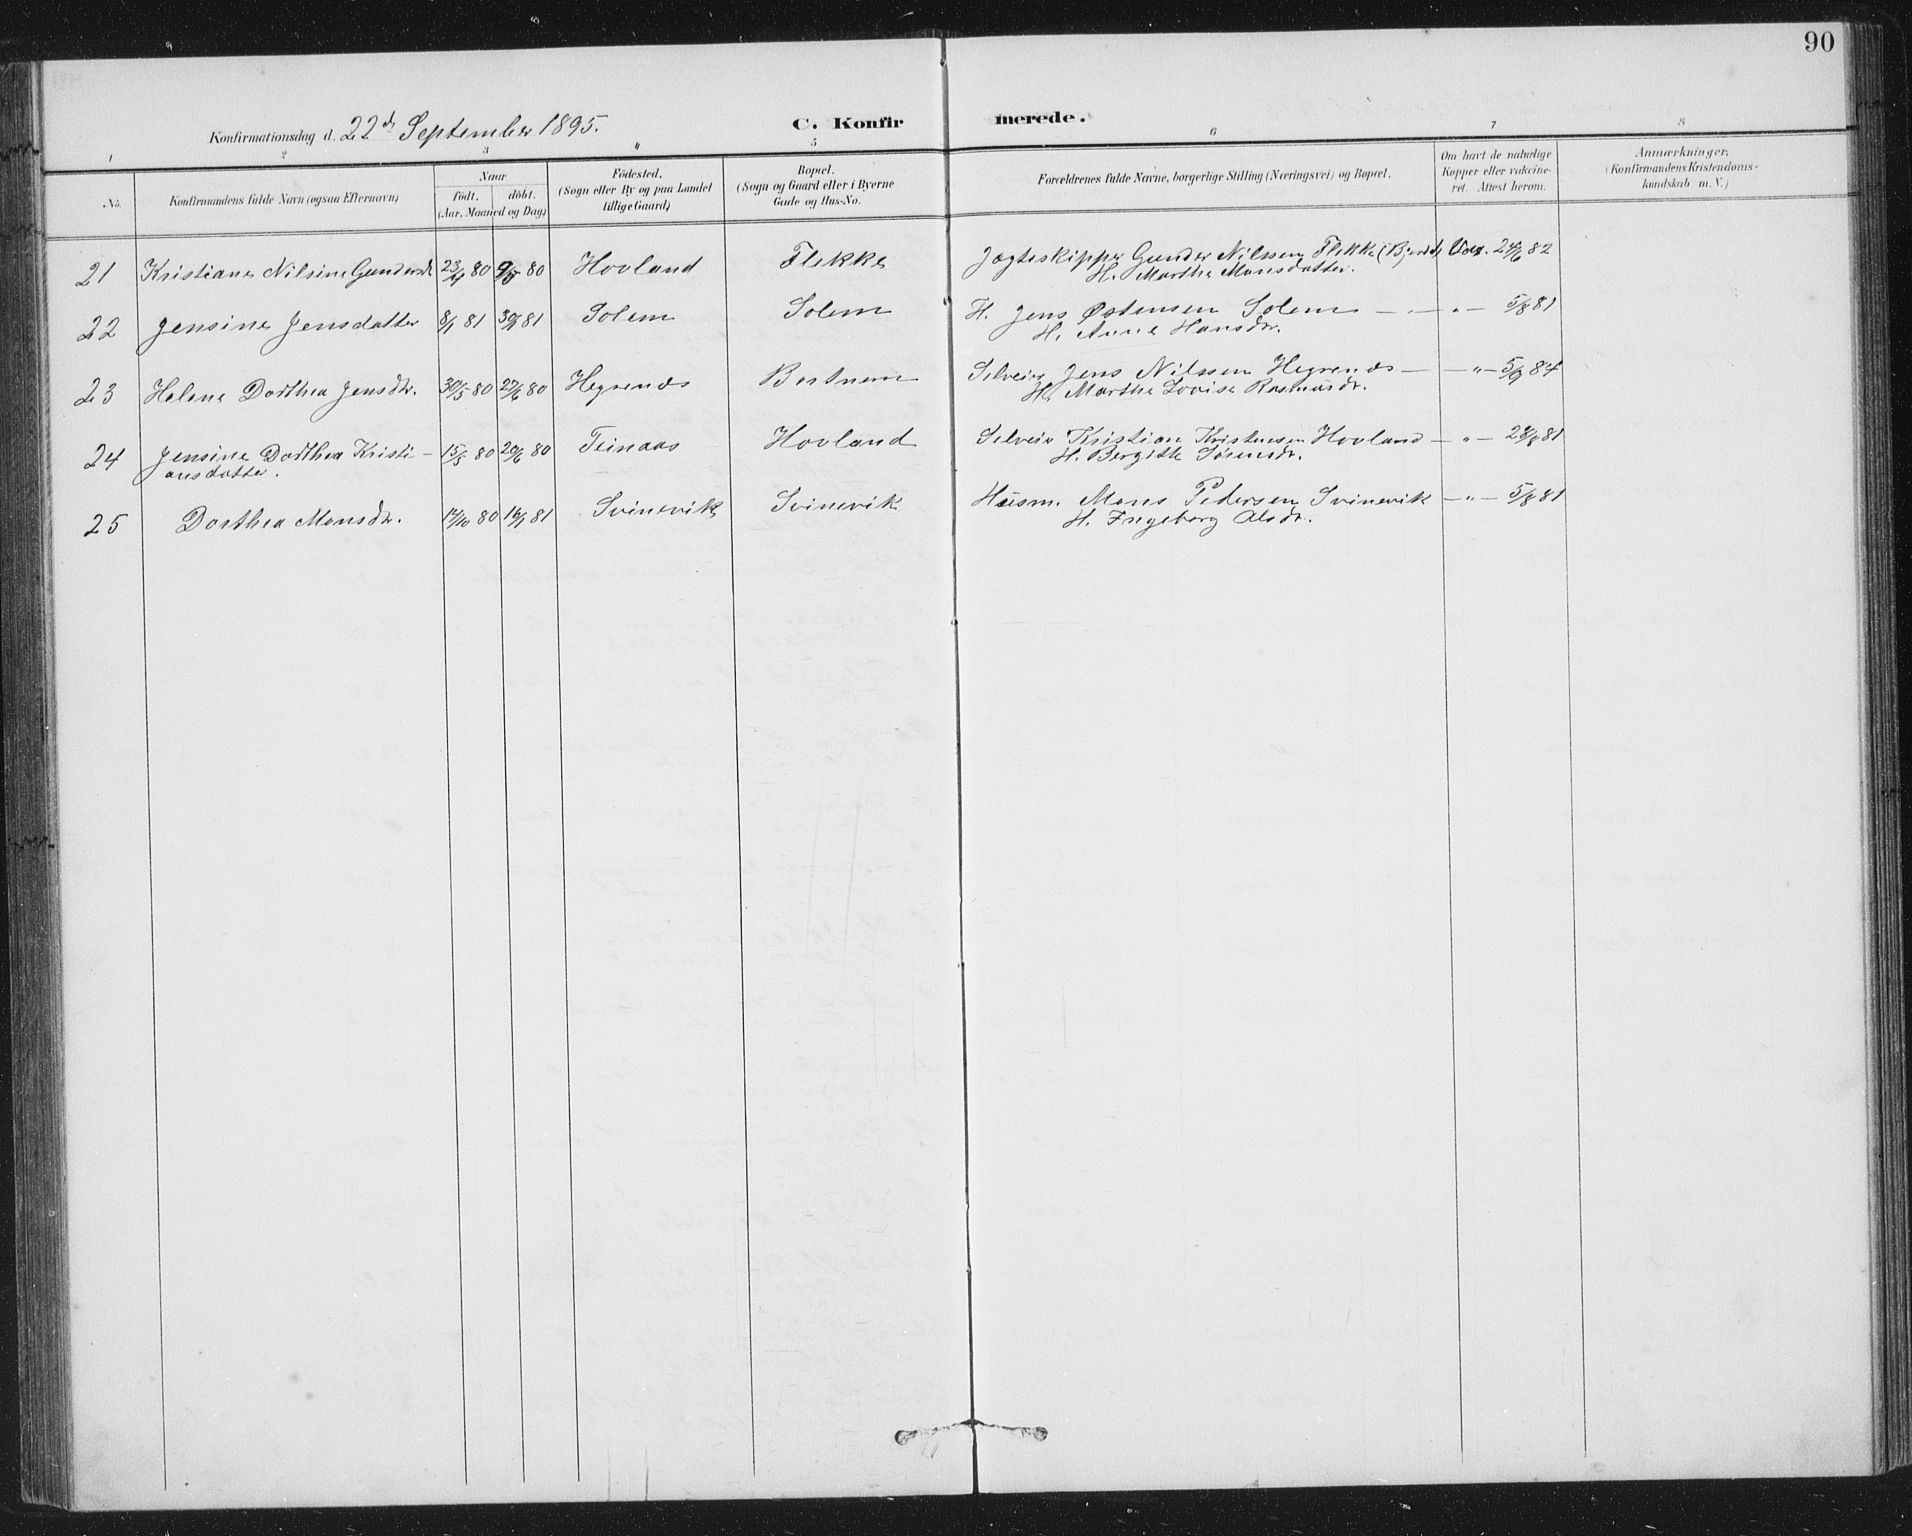 90
Konfirmationsdag d. 22d September 1895. C. Konfirmerede.
1 2 3 4 5 6 7 8
No. Konfirmandens fulde Navn (ogsaa Efternavn) Naar födt. döbt. (Aar, Maaned og Dag) Födested. (Sogn eller By og paa Landet tillige Gaard) Bopæl. (Sogn og Gaard eller i Byerne Gade og Hus-No. Forældrenes fulde Navne, borgerlige Stilling (Næringsvei) og Bopæl. Om havt de naturlige Kopper eller vakcineret. Attest herom. Anmærkninger. (Konfirmandens Kristendomskundskab m. V.)
21 Kristiane Nilsine Gundersd 23/4 80 9/5 80 Hovland Flekke Jægteskipper Gunder Nilssen Flekke Vax. 82
H. Marthe Monsdatter.
22 Jensine Jensdatter 8/1 81 30/1 81 Solem Solem H. Jens Østensen Solem — „ — 5/8 81
H. Anne Hansdr.
23 Helene Dorthea Jensdtr. 30/5 80 27/6 80 Hegrenæs Bortnem Selveier Jens Nilssen Hegrenæs — „ — 5/9 84
H. Marthe Lovise Rasmusdr.
24 Jensine Dorthea Kristi- 15/5 80 20/6 80 Teinaas Hovland Selveier Kristian Hovland — „ — 81
ansdatter. H. Bergitte Sørensdr.
25 Dorthea Monsdr. 17/10 80 16/1 81 Svinevik Svinevik Husm. Mons Pedersen Svinevik — „ — 5/8 81
H. Ingeborg Olsdr.